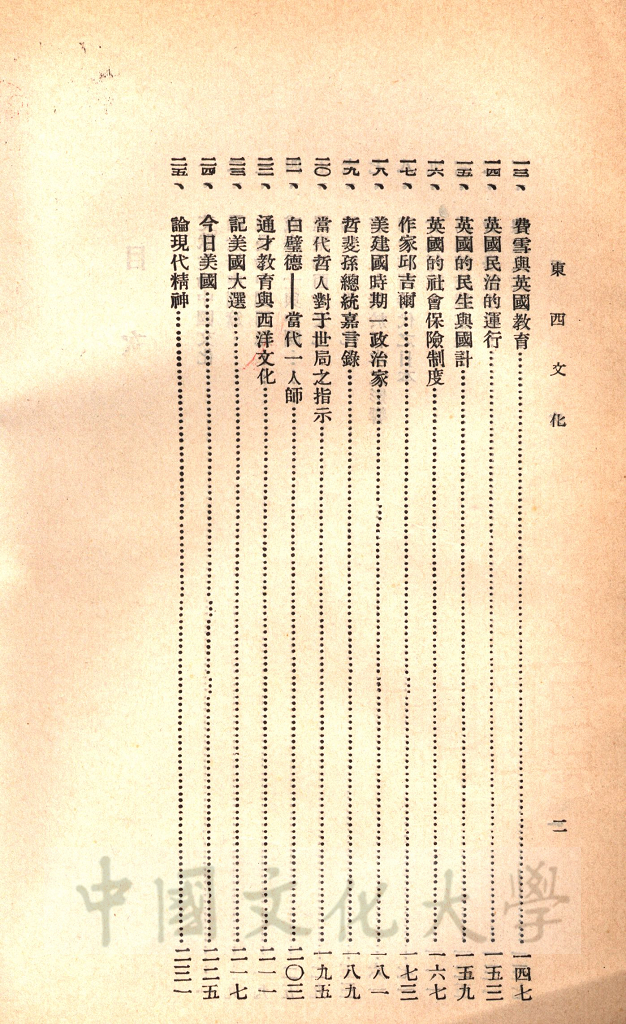 東西文化
二
一三、費雪與英國教育……147
一四、英國民治的運行……一五三
一五、英國的民生與國計……一五九
一六、英國的社會保險制度……一六七
一七、作家邱吉爾……一七三
一八、美建國時期一政治家……一八一
一九、哲斐孫總統嘉言錄……一八九
二〇、當代哲人對于世局之指示……一九五
二一、白璧德——當代一人師……二〇三
二二、通才教育與西洋文化……二一一
二三、記美國大選……二一七
二四、今日美國……二二五
二五、論現代精神……二三一
中國文化大學